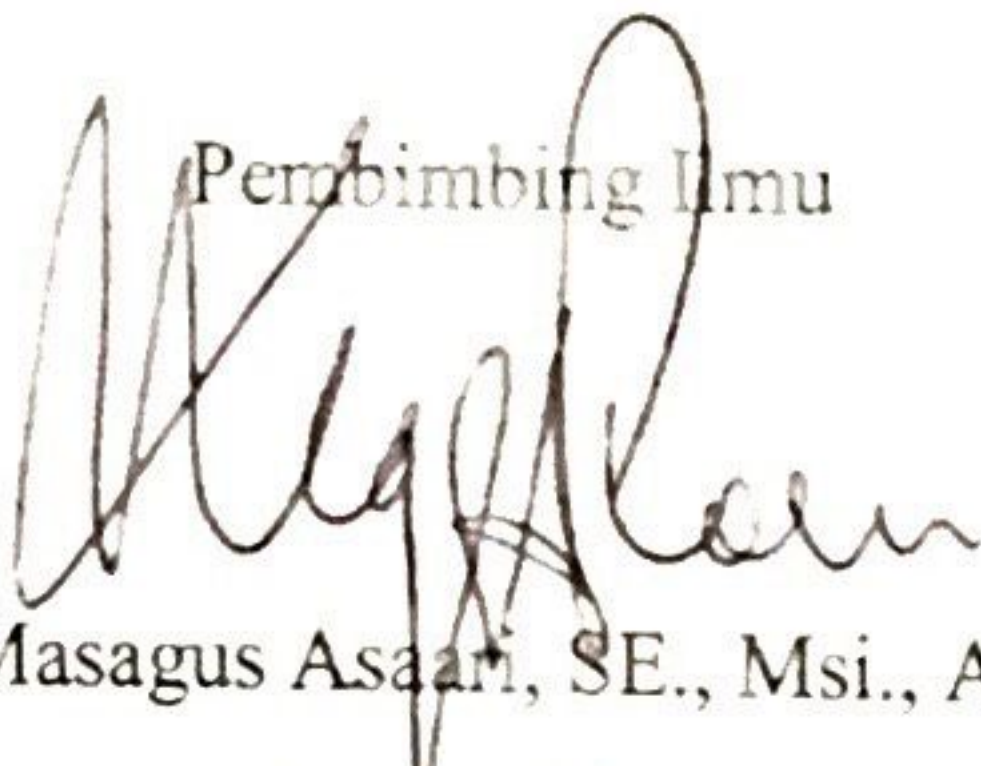 Pembimbing Ilmu
Masagus Asaari, SE., Msi., A